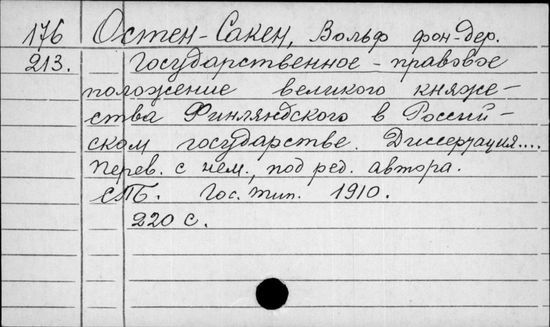 176 Остен-Сакен, Вольф фон-дер.
213. Государственное-правовое
положение великого княже-
ства Финляндского в Россий-
ском государстве. Диссертация....
Перев. с нем., под ред. автора.
СПБ. Гос. тип. 1910.
220 с.